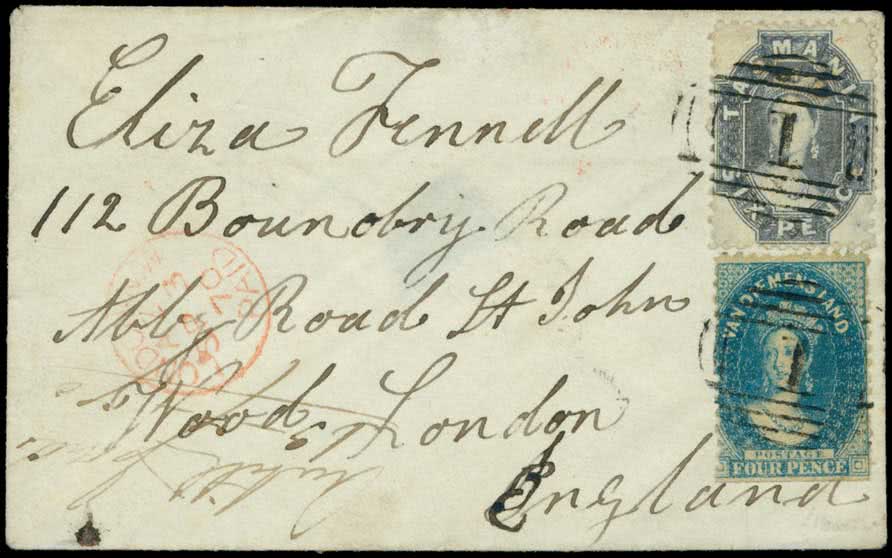 Eliza Fennell
112 Boundry Road
Abby Road St John
s Wood London
England
TASMANIA
SIX PENCE
1
VAN DIEMENS LAND
1
POSTAGE
FOUR PENCE
PAID